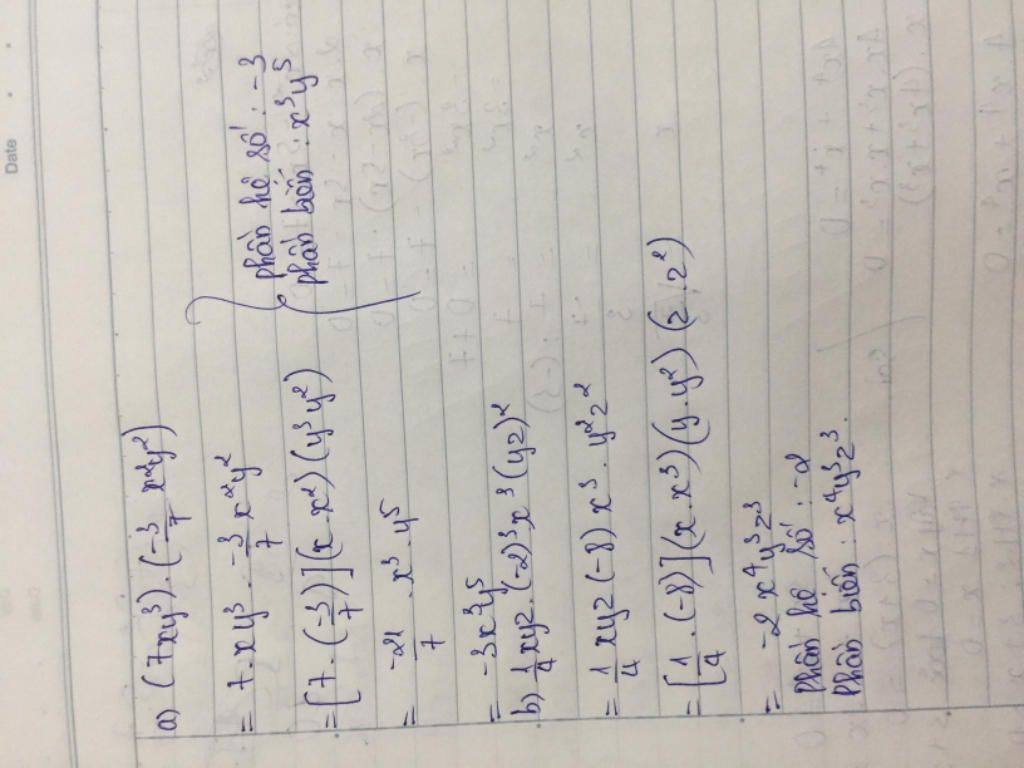 Date
a) (7xy³).(-3/7 x²y²)
= 7.xy³.-3/7 x²y²
=[7.(-3/7)](x.x²)(y³y²)
= -21/7 .x³.y⁵
= -3x³y⁵
phần hệ số : -3
phần biến : x³y⁵
b) 1/4xyz.(-2)³x³(yz)²
= 1/4 xyz(-8)x³.y²z²
=[1/4.(-8)](x.x³)(y.y²)(z.z²)
= -2x⁴y³z³
Phần hệ số : -2
Phần biến : x⁴y³z³.